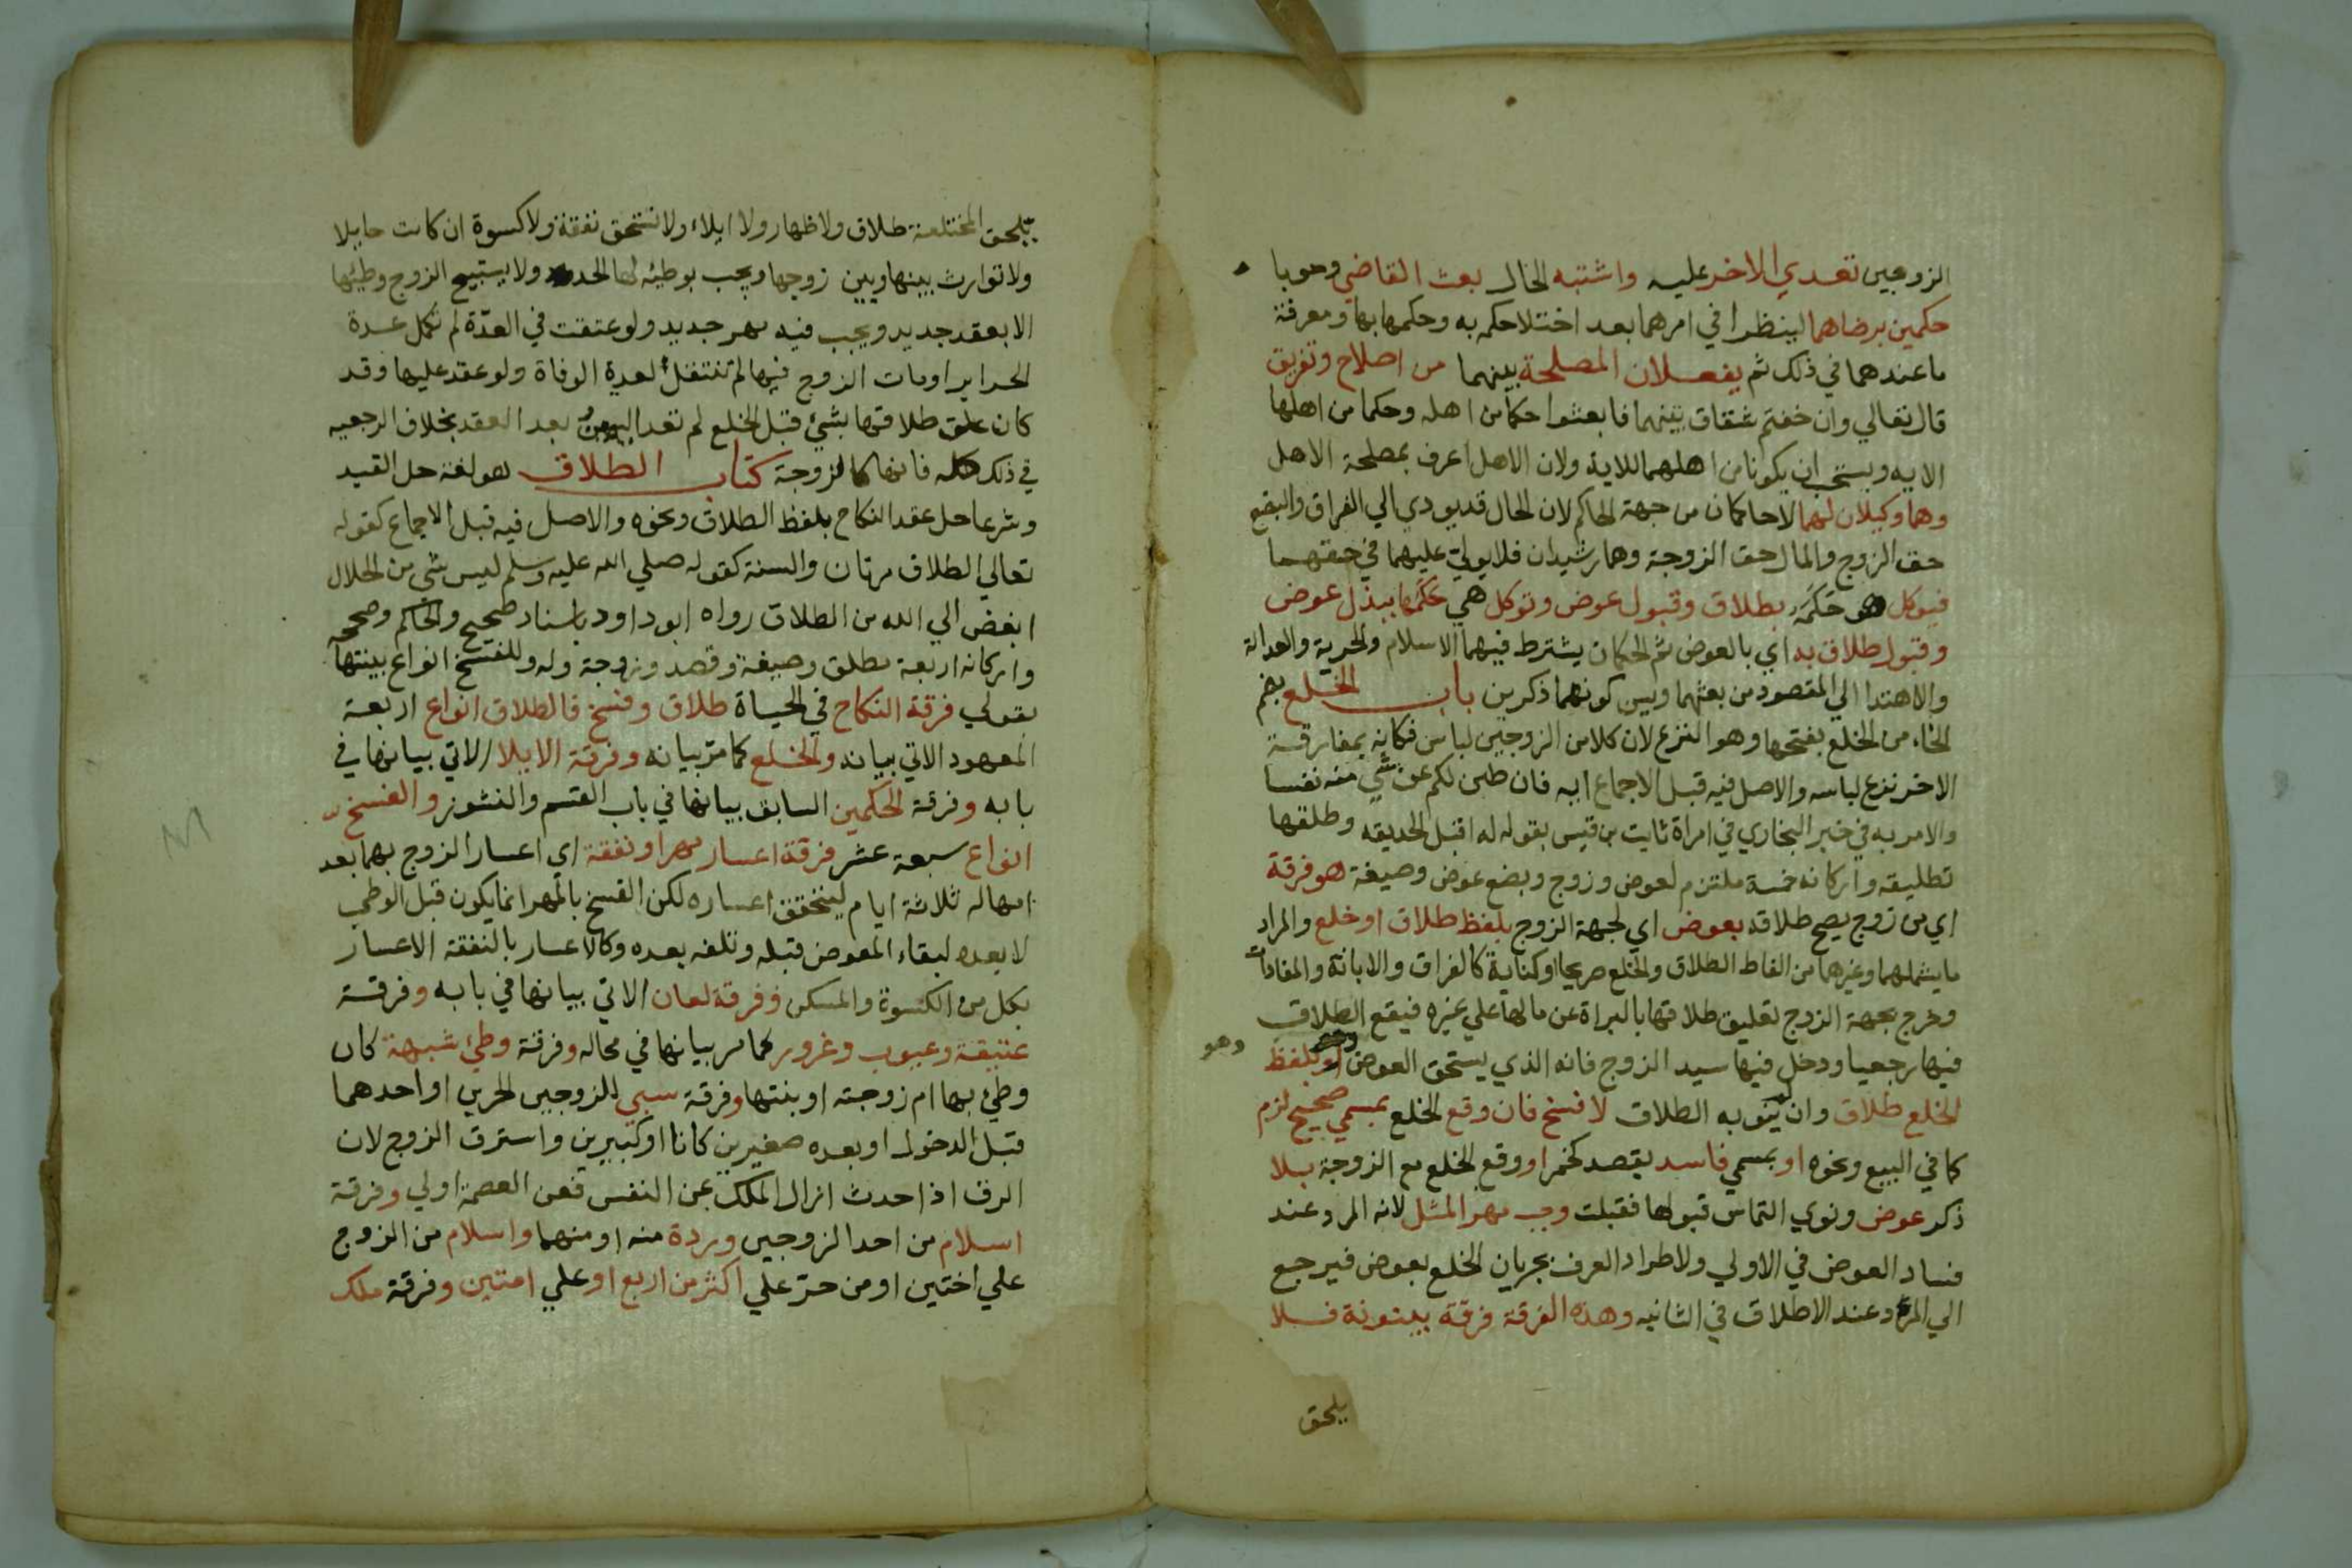 الزوجين تعدي الاخر عليه واشتبه الحال بعث القاضي وجوبا
حكمين برضاهما لينظرا في امرهما بعد اختلا حكمه به وحكمها بها ومعرفة
ما عندهما في ذلك ثم يفعلان المصلحة بينهما من اصلاح وتفريق
قال تعالي وان خفتم شقاق بينهما فابعثوا حكما من اهله وحكما من اهلها
الايه ويستحب ان يكونا من اهلهما للاية ولان الاهل اعرف بمصلحة الاهل
وهما وكيلان لهما لا حاكمان من جهة الحاكم لان الحال قد يودي الي الفراق والبضع
حق الزوج والمال حق الزوجة وهما رشيدان فلا يولي عليهما في حقهما
فيوكل هو حكمه بطلاق وقبول عوض وتوكل هي حكمها ببذل عوض
وقبول طلاق به اي بالعوض ثم الحكمان يشترط فيهما الاسلام والحرية والعدالة
والاهتدا الي المقصود من بعثهما ويسن كونهما ذكرين باب الخلع بضم
الخاء من الخلع بفتحها وهو النزع لان كلا من الزوجين لباس فكانه بمفارقة
الاخر نزع لباسه والاصل فيه قبل الاجماع ايه فان طبن لكم عن شي منه نفسا
والامر به في خبر البخاري في امراة ثابت بن قيس بقوله له اقبل الحديقه وطلقها
تطليقه واركانه خمسة ملتزم لعوض وزوج وبضع عوض وصيغة هو فرقة
اي من زوج يصح طلاقه بعوض اي لجهة الزوج بلفظ طلاق او خلع والمراد
ما يشملهما وغيرهما من الفاظ الطلاق والخلع صريحا او كناية كالفراق والابانة والمفادات
وخرج بجهة الزوج تعليق طلاقها بالبراة عن مالها علي غيره فيقع الطلاق
فيها رجعيا ودخل فيها سيد الزوج فانه الذي يستحق العوض وهو بلفظ
الخلع طلاق وان لم ينو به الطلاق لا فسخ فان وقع الخلع بمسمي صحيح لزم
كما في البيع ونحوه او بمسمي فاسد يقصد كخمر او وقع الخلع مع الزوجة بلا
ذكر عوض ونوي التماس قبولها فقبلت وجب مهر المثل لانه المرد عند
فساد العوض في الاولي ولاطراد العرف بجريان الخلع بعوض فيرجع
الي المرد عند الاطلاق في الثانيه وهذه الفرقة فرقة بينونة فلا
يلحق
يلحق المختلعة طلاق ولا ظهار ولا ايلاء ولا تستحق نفقة ولا كسوة ان كانت حايلا
ولا توارث بينها وبين زوجها ويجب بوطئه لها الحد ولا يستبيح الزوج وطئها
الا بعقد جديد ويجب فيه مهر جديد ولو عتقت في العدّة لم تكمل عدة
الحراير او مات الزوج فيها لم تنتقل لعدة الوفاة ولو عقد عليها وقد
كان علق طلاقها بشئ قبل الخلع لم تعد اليمين بعد العقد بخلاف الرجعيه
في ذلك كله فانها كالزوجة كتاب الطلاق هو لغة حل القيد
وشرعا حل عقد النكاح بلفظ الطلاق ونحوه والاصل فيه قبل الاجماع كقوله
تعالي الطلاق مرتان والسنة كقوله صلي الله عليه وسلم ليس شي من الحلال
ابغض الي الله من الطلاق رواه ابو داود باسناد صحيح والحاكم وصححه
واركانه اربعة مطلق وصيغة وقصد وزوجة وله وللفسخ انواع بينتها
بقولي فرقة النكاح في الحياة طلاق وفسخ فالطلاق انواع اربعة
المعهود الاتي بيانه والخلع كما مر بيانه وفرقة الايلا الاتي بيانها في
بابه وفرقة الحكمين السابق بيانها في باب القسم والنشوز والفسخ
انواع سبعة عشر فرقة اعسار مهر او نفقة اي اعسار الزوج بهما بعد
امهاله ثلاثة ايام ليتحقق اعساره لكن الفسخ بالمهر انما يكون قبل الوطي
لا بعده لبقاء المعوض قبله وتلفه بعده وكالاعسار بالنفقة الاعسار
بكل من الكسوة والمسكن وفرقة لعان الاتي بيانها في بابه وفرقة
عتيقة وعيوب وغرور كما مر بيانها في محاله وفرقة وطئ شبهة كان
وطئ بها ام زوجته او بنتها وفرقة سبي للزوجين الحرين او احدهما
قبل الدخول او بعده صغيرين كانا او كبيرين واسترق الزوج لان
الرق اذا حدث ازال الملك عن النفس فعن العصمة اولي وفرقة
اسلام من احد الزوجين وردة منه او منهما واسلام من الزوج
علي اختين او من حرّ علي اكثر من اربع او علي امتين وفرقة ملك